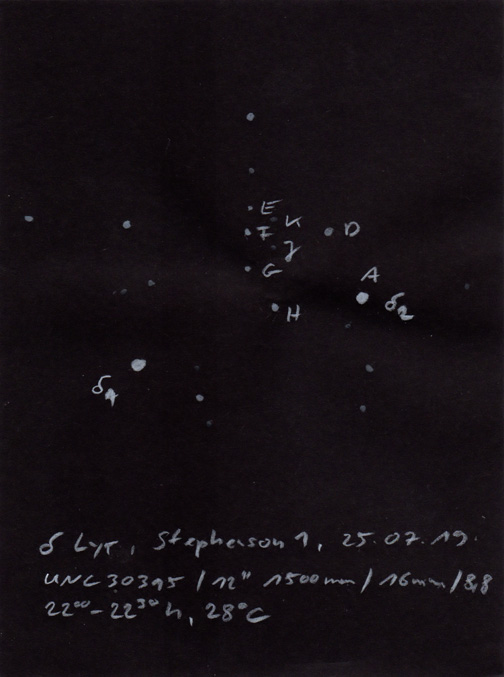 E
K
F
D
J
G
A
δ2
H
δ1
δ Lyr, Stephenson 1, 25.07.19.
UNC 30395 / 12" 1500mm / 16mm / 88
22⁰⁰ - 22³⁰ h, 28°C